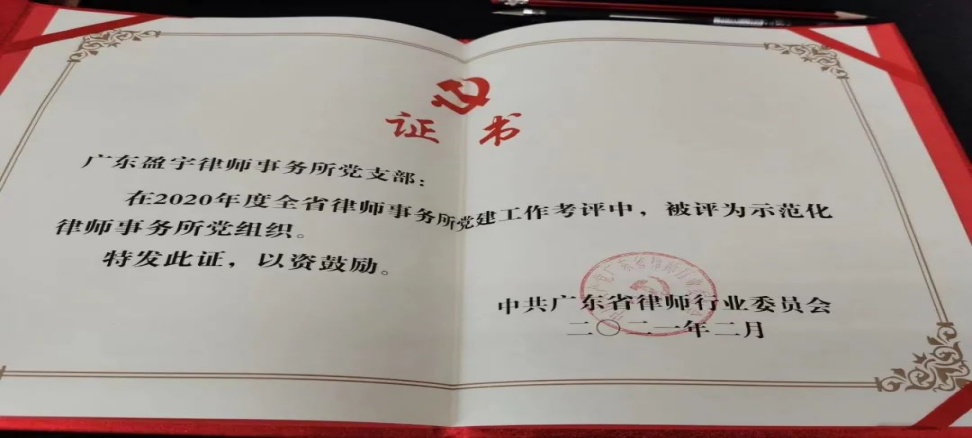 证书
广东盈宇律师事务所党支部：
在2020年度全省律师事务所党建工作考评中，被评为示范化
律师事务所党组织。
特发此证，以资鼓励。
中共广东省律师行业委员会
二〇二一年二月